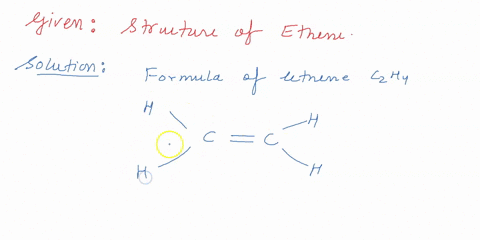 Given: Structure of Ethene.
Solution: Formula of ethene C₂H₄
H H
C = C
H H